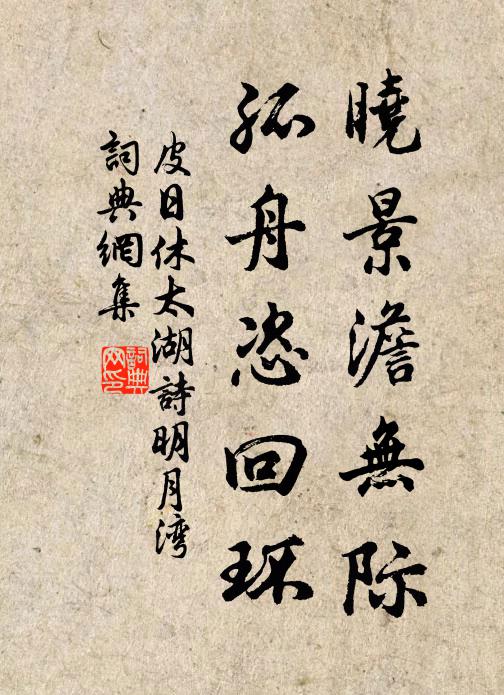 曉景澹無際
孤舟恣回环
皮日休太湖詩明月湾
詞典網集
詞典
网印